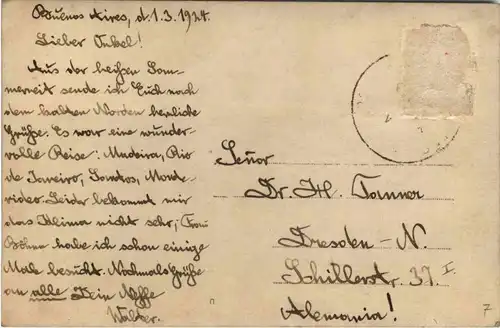 Buenos Aires, d. 1.3.1924.
Lieber Onkel!
Aus der heißen Som-
merzeit sende ich Euch nach
dem kalten Norden herzliche
Grüße. Es war eine wunder-
volle Reise: Madeira, Rio
de Janeiro, Santos, Monte-
video. Leider bekommt mir
das Klima nicht sehr; Frau
habe ich schon einige
Male besucht. Nochmals Grüße
an alle Dein Neffe
Walter.
Señor
Dr. H.
Dresden-N.
Schillerstr. 37. I.
Alemania!